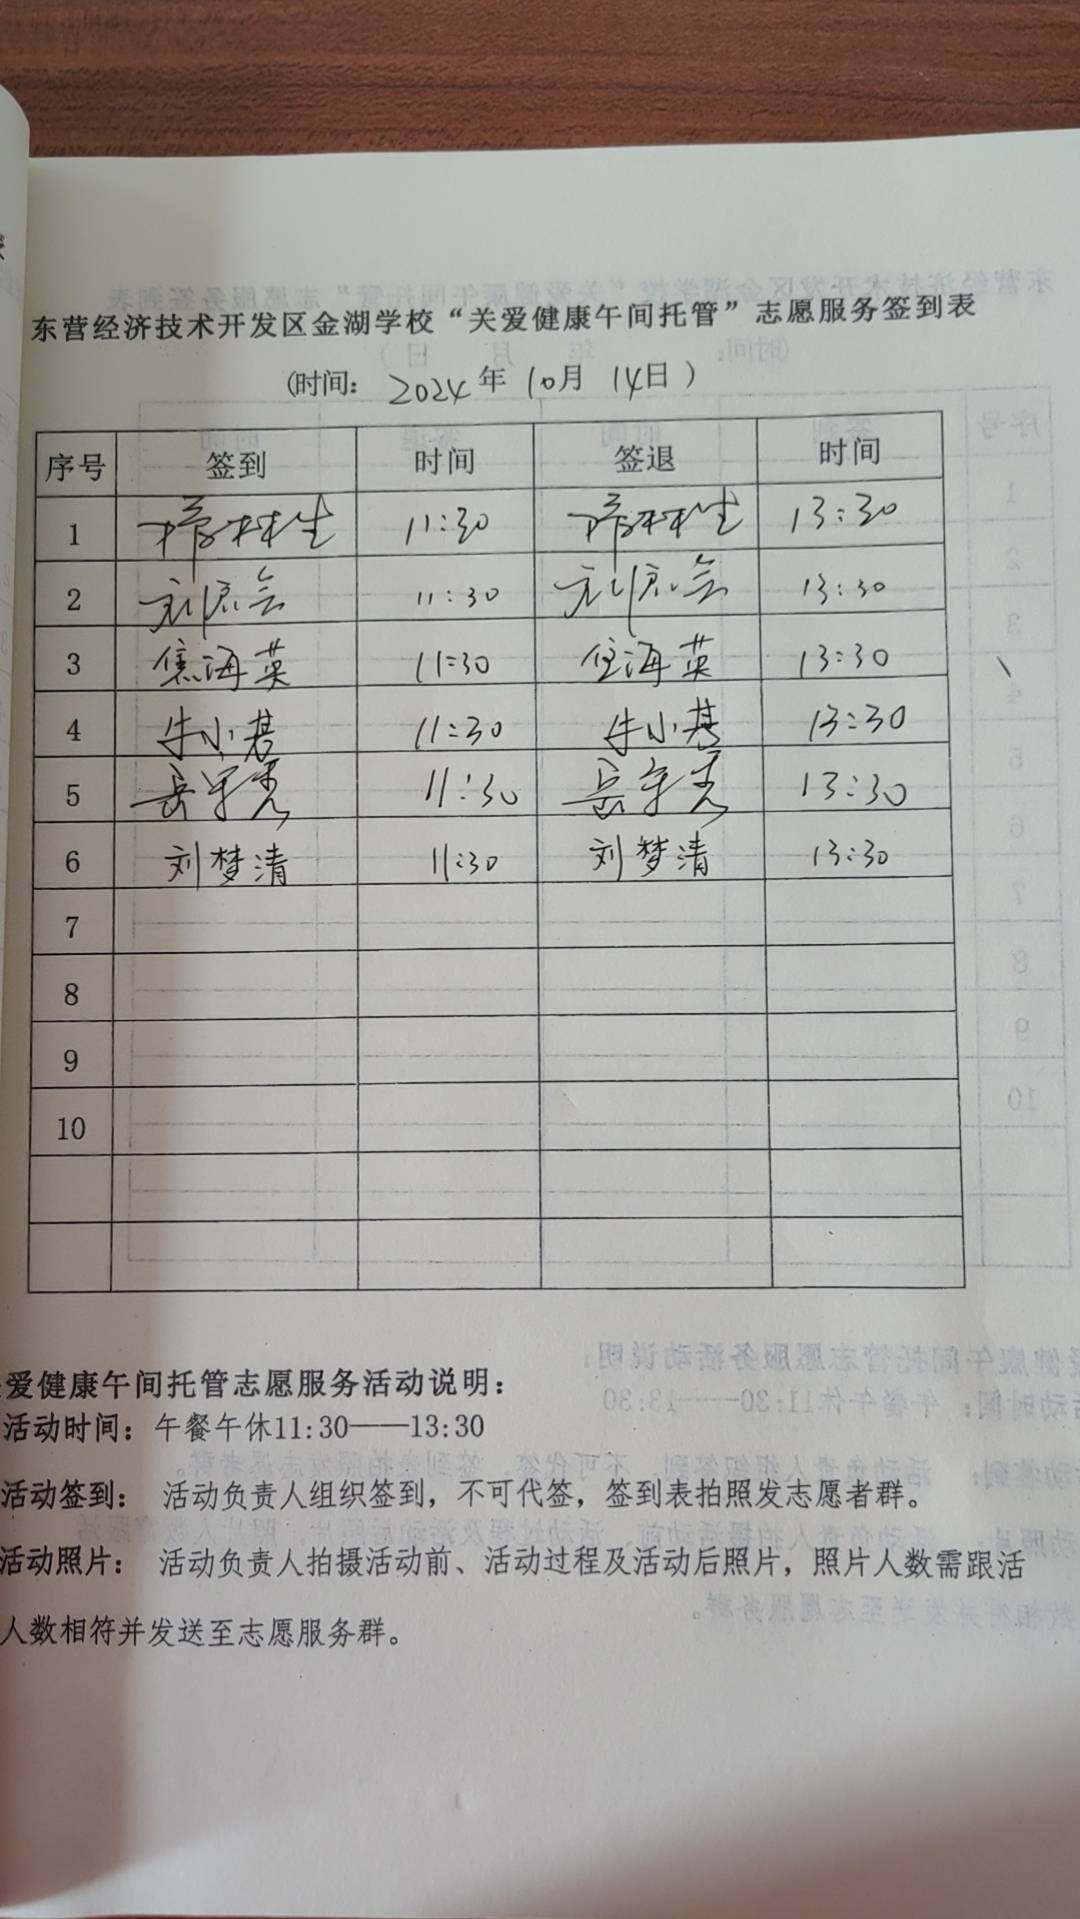 东营经济技术开发区金湖学校“关爱健康午间托管”志愿服务签到表
(时间: 2024年 10月 14日)
序号 签到 时间 签退 时间
1 11:30 13:30
2 11:30 13:30
3 焦海英 11:30 焦海英 13:30
4 牛小 11:30 牛小 13:30
5 岳 11:30 岳 13:30
6 刘梦清 11:30 刘梦清 13:30
7
8
9
10
爱健康午间托管志愿服务活动说明:
活动时间: 午餐午休11:30——13:30
活动签到: 活动负责人组织签到，不可代签，签到表拍照发志愿者群。
活动照片: 活动负责人拍摄活动前、活动过程及活动后照片，照片人数需跟活
人数相符并发送至志愿服务群。